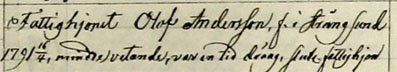 Fattighjonet Olof Andersson, f. i Strängsund
1791 16/4, mindre vetande, var en tid dräng, slute fattighjon